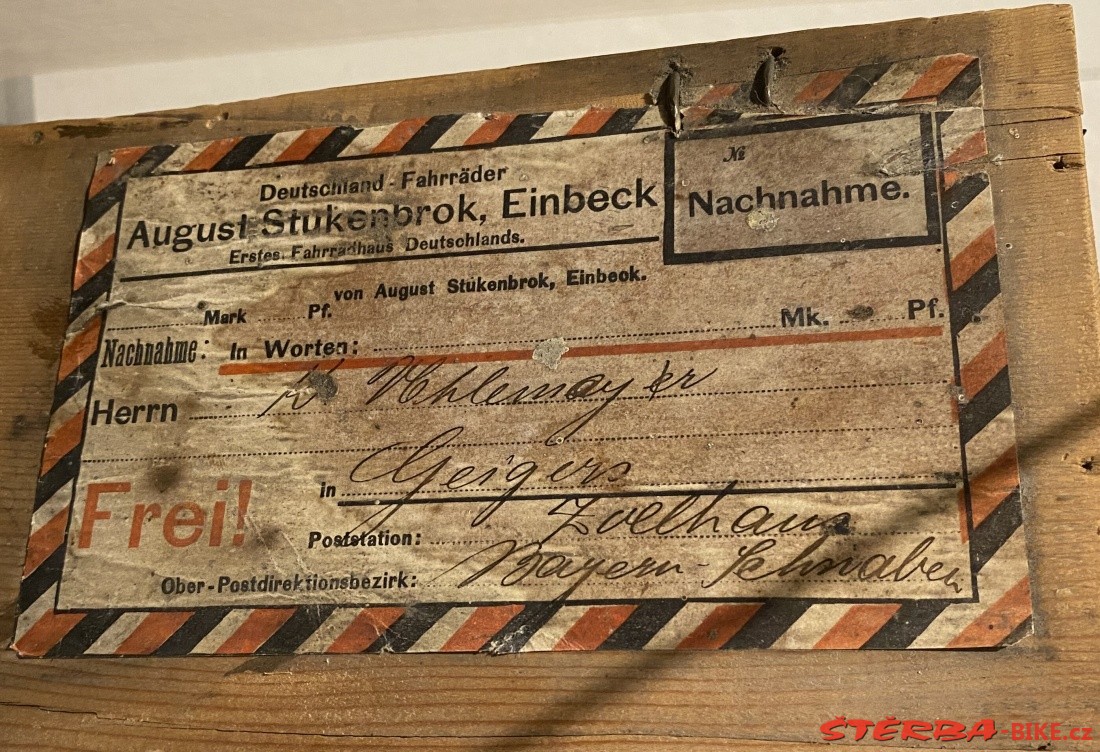 Deutschland-Fahrräder
August Stukenbrok, Einbeck
Erstes Fahrradhaus Deutschlands.
№
Nachnahme.
von August Stukenbrok, Einbeck.
Mark Pf.
Nachnahme: In Worten: Mk. Pf.
Herrn
in Geigers
Frei!
Poststation: Zollhaus
Ober-Postdirektionsbezirk: Bayern-Schwaben
ŠTĚRBA-BIKE.cz